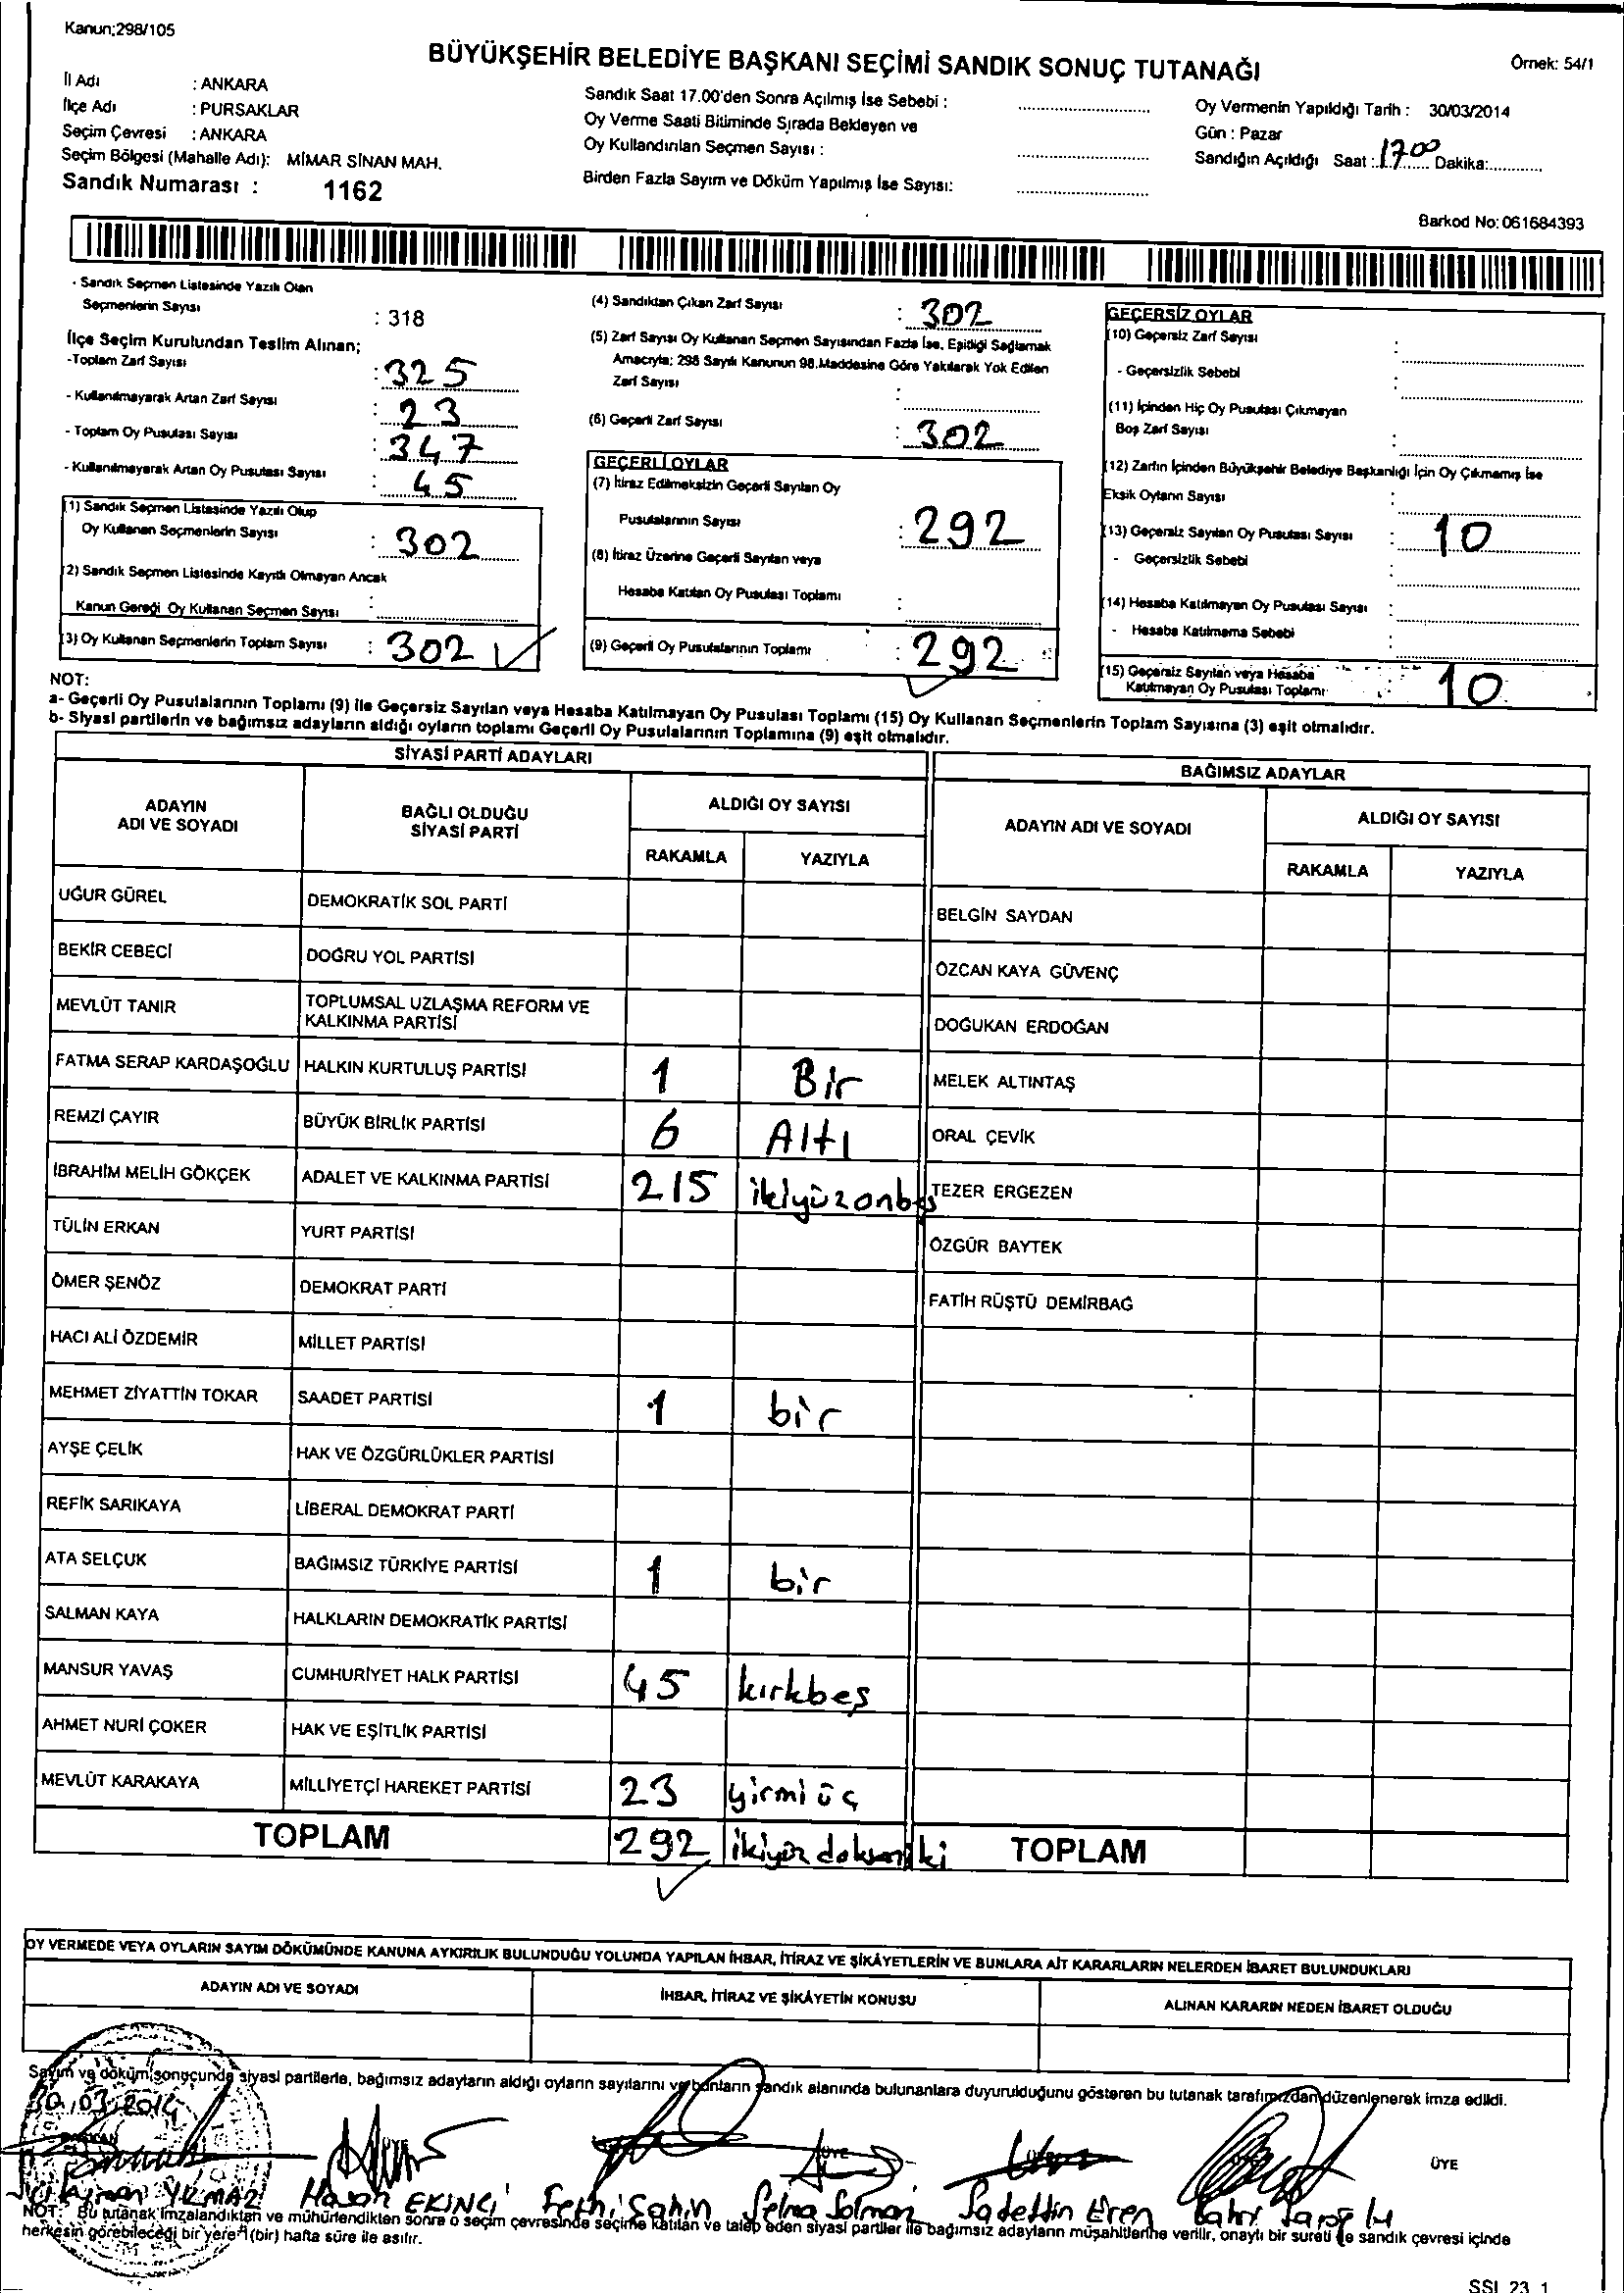 Kanun;298/105
BÜYÜKŞEHİR BELEDİYE BAŞKANI SEÇİMİ SANDIK SONUÇ TUTANAĞI
Örnek: 54/1
İl Adı : ANKARA
İlçe Adı : PURSAKLAR
Seçim Çevresi : ANKARA
Seçim Bölgesi (Mahalle Adı): MİMAR SİNAN MAH.
Sandık Numarası : 1162
Sandık Saat 17.00'den Sonra Açılmış İse Sebebi : ....................
Oy Verme Saati Bitiminde Sırada Bekleyen ve
Oy Kullandırılan Seçmen Sayısı : ....................
Birden Fazla Sayım ve Döküm Yapılmış İse Sayısı: ....................
Oy Vermenin Yapıldığı Tarih : 30/03/2014
Gün : Pazar
Sandığın Açıldığı Saat : 1700 Dakika:............
Barkod No: 061684393
- Sandık Seçmen Listesinde Yazılı Olan
Seçmenlerin Sayısı : 318
İlçe Seçim Kurulundan Teslim Alınan;
-Toplam Zarf Sayısı : 325
- Kullanılmayarak Artan Zarf Sayısı : 23
- Toplam Oy Pusulası Sayısı : 347
- Kullanılmayarak Artan Oy Pusulası Sayısı : 45
(1) Sandık Seçmen Listesinde Yazılı Olup
Oy Kullanan Seçmenlerin Sayısı : 302
(2) Sandık Seçmen Listesinde Kayıtlı Olmayan Ancak
Kanun Gereği Oy Kullanan Seçmen Sayısı :
(3) Oy Kullanan Seçmenlerin Toplam Sayısı : 302
(4) Sandıktan Çıkan Zarf Sayısı : 302
(5) Zarf Sayısı Oy Kullanan Seçmen Sayısından Fazla İse, Eşitliği Sağlamak
Amacıyla; 298 Sayılı Kanunun 98.Maddesine Göre Yakılarak Yok Edilen
Zarf Sayısı :
(6) Geçerli Zarf Sayısı : 302
GEÇERLİ OYLAR
(7) İtiraz Edilmeksizin Geçerli Sayılan Oy
Pusulalarının Sayısı : 292
(8) İtiraz Üzerine Geçerli Sayılan veya
Hesaba Katılan Oy Pusulası Toplamı :
(9) Geçerli Oy Pusulalarının Toplamı : 292
GEÇERSİZ OYLAR
(10) Geçersiz Zarf Sayısı :
- Geçersizlik Sebebi :
(11) İçinden Hiç Oy Pusulası Çıkmayan
Boş Zarf Sayısı :
(12) Zarfın İçinden Büyükşehir Belediye Başkanlığı İçin Oy Çıkmamış İse
Eksik Oyların Sayısı :
(13) Geçersiz Sayılan Oy Pusulası Sayısı : 10
- Geçersizlik Sebebi :
(14) Hesaba Katılmayan Oy Pusulası Sayısı :
- Hesaba Katılmama Sebebi :
(15) Geçersiz Sayılan veya Hesaba
Katılmayan Oy Pusulası Toplamı 10
NOT:
a- Geçerli Oy Pusulalarının Toplamı (9) ile Geçersiz Sayılan veya Hesaba Katılmayan Oy Pusulası Toplamı (15) Oy Kullanan Seçmenlerin Toplam Sayısına (3) eşit olmalıdır.
b- Siyasi partilerin ve bağımsız adayların aldığı oyların toplamı Geçerli Oy Pusulalarının Toplamına (9) eşit olmalıdır.
SİYASİ PARTİ ADAYLARI
ADAYIN ADI VE SOYADI
BAĞLI OLDUĞU SİYASİ PARTİ
ALDIĞI OY SAYISI
RAKAMLA YAZIYLA
UĞUR GÜREL DEMOKRATİK SOL PARTİ
BEKİR CEBECİ DOĞRU YOL PARTİSİ
MEVLÜT TANIR TOPLUMSAL UZLAŞMA REFORM VE KALKINMA PARTİSİ
FATMA SERAP KARDAŞOĞLU HALKIN KURTULUŞ PARTİSİ 1 Bir
REMZİ ÇAYIR BÜYÜK BİRLİK PARTİSİ 6 Altı
İBRAHİM MELİH GÖKÇEK ADALET VE KALKINMA PARTİSİ 215 ikiyüzonbeş
TÜLİN ERKAN YURT PARTİSİ
ÖMER ŞENÖZ DEMOKRAT PARTİ
HACI ALİ ÖZDEMİR MİLLET PARTİSİ
MEHMET ZİYATTİN TOKAR SAADET PARTİSİ 1 bir
AYŞE ÇELİK HAK VE ÖZGÜRLÜKLER PARTİSİ
REFİK SARIKAYA LİBERAL DEMOKRAT PARTİ
ATA SELÇUK BAĞIMSIZ TÜRKİYE PARTİSİ 1 bir
SALMAN KAYA HALKLARIN DEMOKRATİK PARTİSİ
MANSUR YAVAŞ CUMHURİYET HALK PARTİSİ 45 kırkbeş
AHMET NURİ ÇOKER HAK VE EŞİTLİK PARTİSİ
MEVLÜT KARAKAYA MİLLİYETÇİ HAREKET PARTİSİ 23 yirmiüç
TOPLAM 292 ikiyüz doksaniki
BAĞIMSIZ ADAYLAR
ADAYIN ADI VE SOYADI
ALDIĞI OY SAYISI
RAKAMLA YAZIYLA
BELGİN SAYDAN
ÖZCAN KAYA GÜVENÇ
DOĞUKAN ERDOĞAN
MELEK ALTINTAŞ
ORAL ÇEVİK
TEZER ERGEZEN
ÖZGÜR BAYTEK
FATİH RÜŞTÜ DEMİRBAĞ
TOPLAM
OY VERMEDE VEYA OYLARIN SAYIM DÖKÜMÜNDE KANUNA AYKIRILIK BULUNDUĞU YOLUNDA YAPILAN İHBAR, İTİRAZ VE ŞİKÂYETLERİN VE BUNLARA AİT KARARLARIN NELERDEN İBARET BULUNDUKLARI
ADAYIN ADI VE SOYADI
İHBAR, İTİRAZ VE ŞİKÂYETİN KONUSU
ALINAN KARARIN NEDEN İBARET OLDUĞU
Sayım ve döküm sonucunda siyasi partilerle, bağımsız adayların aldığı oyların sayılarını ve bunların sandık alanında bulunanlara duyurulduğunu gösteren bu tutanak tarafımızdan düzenlenerek imza edildi.
30.03.2014
BAŞKAN ÜYE ÜYE ÜYE
YILMAZ Hasan EKİNCİ Fethi Şahin Selma Solmaz Sadettin Eren
NOT: Bu tutanak imzalandıktan ve mühürlendikten sonra o seçim çevresinde seçime katılan ve talep eden siyasi partiler ile bağımsız adayların müşahitlerine verilir, onaylı bir sureti de sandık çevresi içinde
herkesin görebileceği bir yere 1 (bir) hafta süre ile asılır.
SSI_23_1